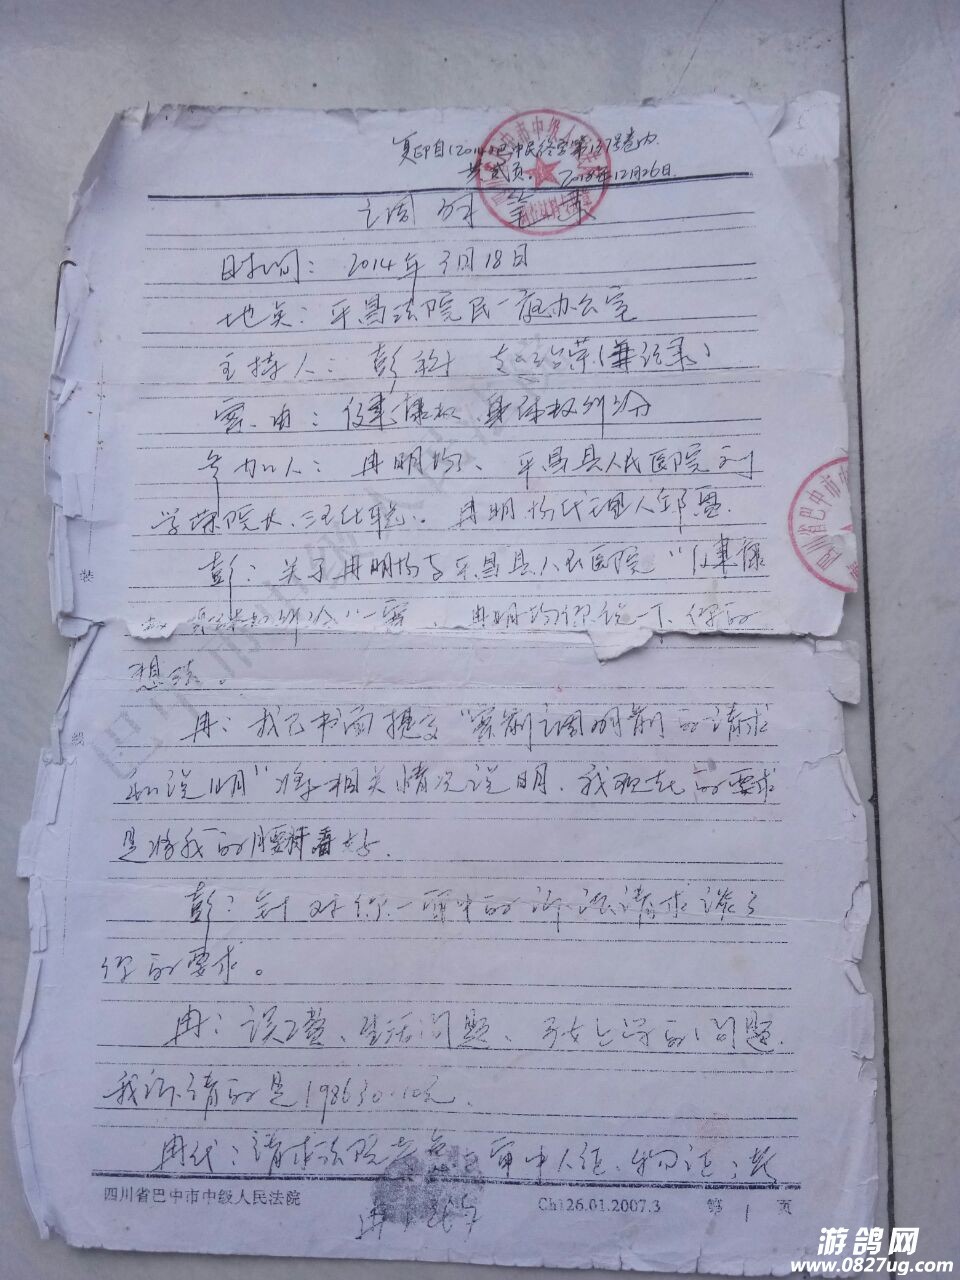 复印自(2014)巴中民终字第137号卷内
共贰页。2018年12月26日.
调解笔录
时间：2014年3月18日
地点：平昌法院民一庭办公室
主持人：彭 (兼记录)
案由：健康权、身体权纠纷
参加人：冉明 、平昌县人民医院刘
学荣院长、 。冉明 代理人邱
彭：关于冉明 与平昌县人民医院“健康
纠纷”一案，冉明 你说一下，你的
想法。
冉：我已书面提交“案前调解前的请求
和说明”将相关情况说明，我现在的要求
是将我的腰 看好.
彭：针对你一审中的诉讼请求谈了
你的要求。
冉：误工费、生活问题、子女上学的问题.
我诉请的是198630.10元.
冉代：请求法院 审中人证、物证；
装
线
四川省巴中市中级人民法院
Ch126.01.2007.3
第 1 页
四川省巴中市中
巴中市中级人民法院
游鸽网
www.0827ug.com